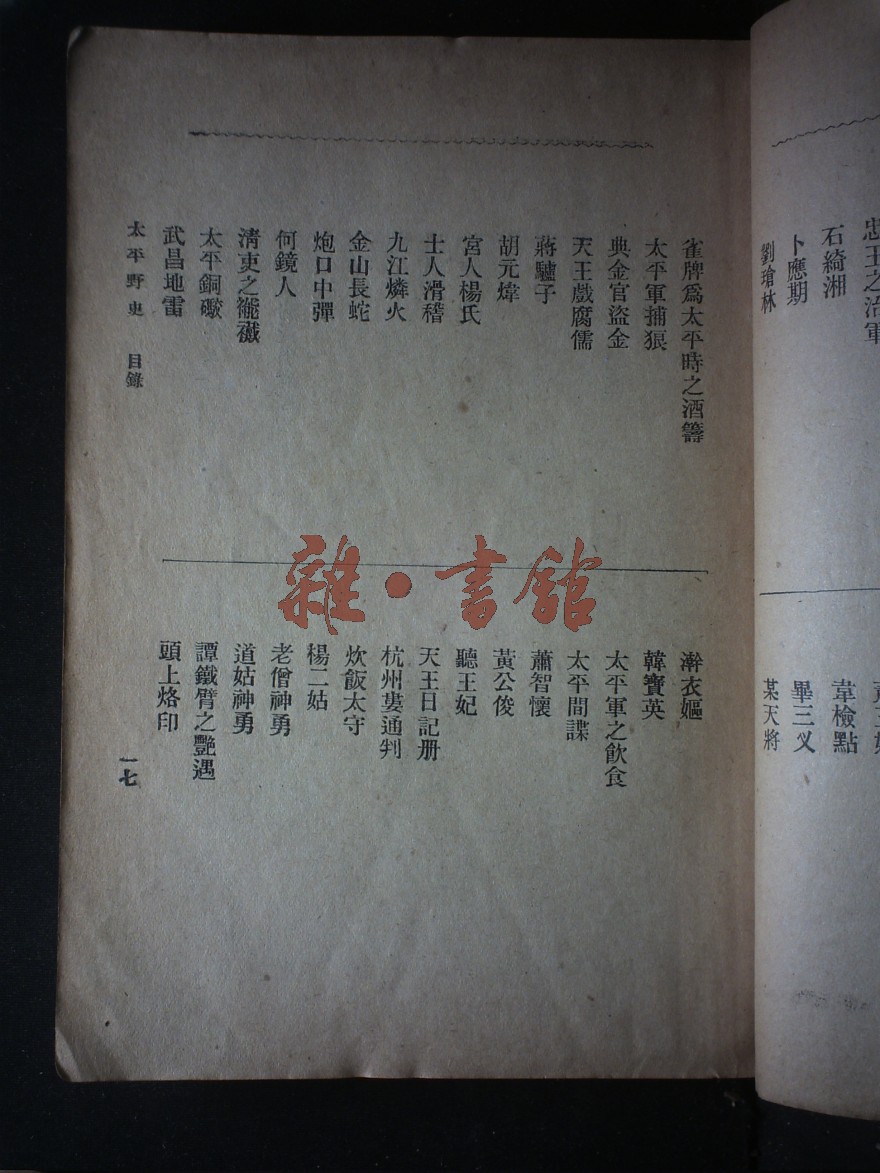 忠王之治軍
石綺湘
卜應期
劉瑲林
韋檢點
畢三义
某天將
雀牌爲太平時之酒籌
太平軍捕狼
典金官盜金
天王戲腐儒
蔣驢子
胡元煒
宮人楊氏
士人滑稽
九江燐火
金山長蛇
炮口中彈
何鏡人
淸吏之褦襶
太平銅礮
武昌地雷
澣衣嫗
韓寶英
太平軍之飮食
太平間諜
蕭智懷
黃公俊
聽王妃
天王日記册
杭州婁通判
炊飯太守
楊二姑
老僧神勇
道姑神勇
譚鐵臂之艷遇
頭上烙印
太平野史 目錄
一七
雜·書館